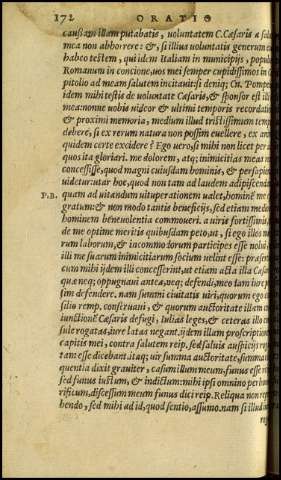 172 ORATIO
caussam illam putabatis, uoluntatem C. Cæsaris a sde
mea non abhorrere: &, si illius uoluntatis generum eu
habeo testem, qui idem Italiam in municipijs, populu
Romanum in concione, uos mei semper cupidissimos in c
pitolio ad meam salutem incitauit: si deniq; Cn. Pompe
idem mihi testis de uoluntate Cæsaris, & sponsor est ill
mea: nonne uobis uideor & ultimi temporis recordati
& proximi memoria, medium illud tristissimum temp
debere, si ex rerum natura non possim euellere, ex an
quidem certe excidere? Ego uero, si mihi non licet per i
quos ita gloriari. me dolorem, atq; inimicitias meas re
concessisse, quod magni cuiusdam hominis, & persapien
uideturutar hoc, quod non tam ad laudem adipiscenda
P.B. quam ad uitandum uituperationem ualet, hominẽ me
gratum: & non modo tantis beneficijs, sed etiam medio
hominem beneuolentia commoueri. a uiris fortissimis,
de me optime meritis quibusdam peto, ut, si ego illos me
rum laborum, & incommodorum participes esse nolui,
illi me suarum inimicitiarum socium uelint esse: præser
cum mihi ijdem illi concesserint, ut etiam acta illa Cæsar
quæ neq; oppugnaui antea, neq; defendi, meo iam iure p
sim defendere. nam summi ciuitatis uiri, quorum ego con
silio remp. conseruaui, & quorum auctoritate illam con
iunctionẽ Cæsaris defugi, Iulias leges, & ceteras illo con
sule rogatas, iure latas negant. ijdem illam proscriptione
capitis mei, contra salutem reip. sed saluis auspicijs roga
tam esse dicebant. itaq; uir summa auctoritate, summa el
quentia dixit grauiter, casum illum meum, funus esse rei
sed funus iustum, & indictum: mihi ipsi omnino perhon
rificum, discessum meum funus dici reip. Reliqua non repr
hendo, sed mihi ad id, quod sentio, assumo. nam si illud iure